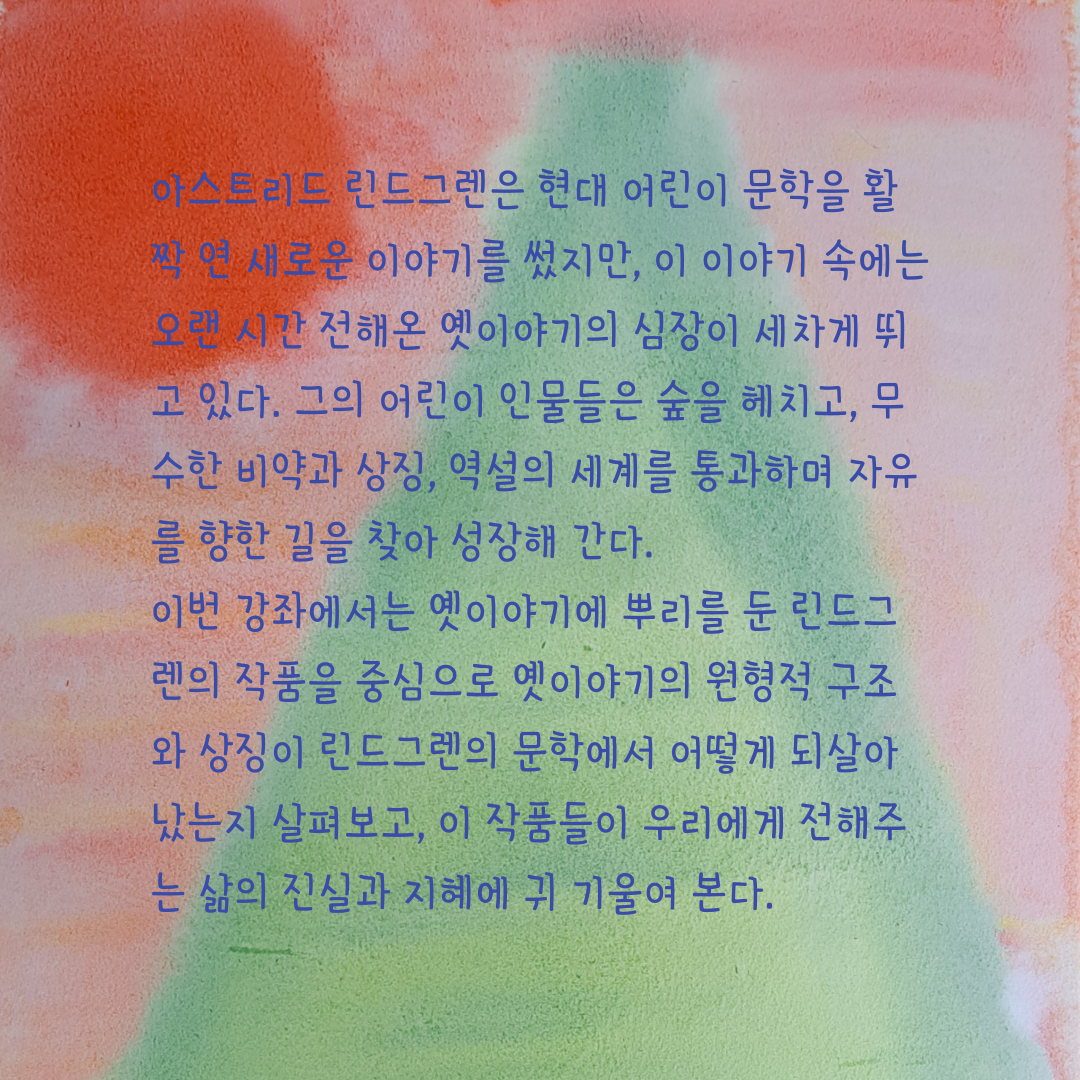 아스트리드 린드그렌은 현대 어린이 문학을 활
짝 연 새로운 이야기를 썼지만, 이 이야기 속에는
오랜 시간 전해온 옛이야기의 심장이 세차게 뛰
고 있다. 그의 어린이 인물들은 숲을 헤치고, 무
수한 비약과 상징, 역설의 세계를 통과하며 자유
를 향한 길을 찾아 성장해 간다.
이번 강좌에서는 옛이야기에 뿌리를 둔 린드그
렌의 작품을 중심으로 옛이야기의 원형적 구조
와 상징이 린드그렌의 문학에서 어떻게 되살아
났는지 살펴보고, 이 작품들이 우리에게 전해주
는 삶의 진실과 지혜에 귀 기울여 본다.